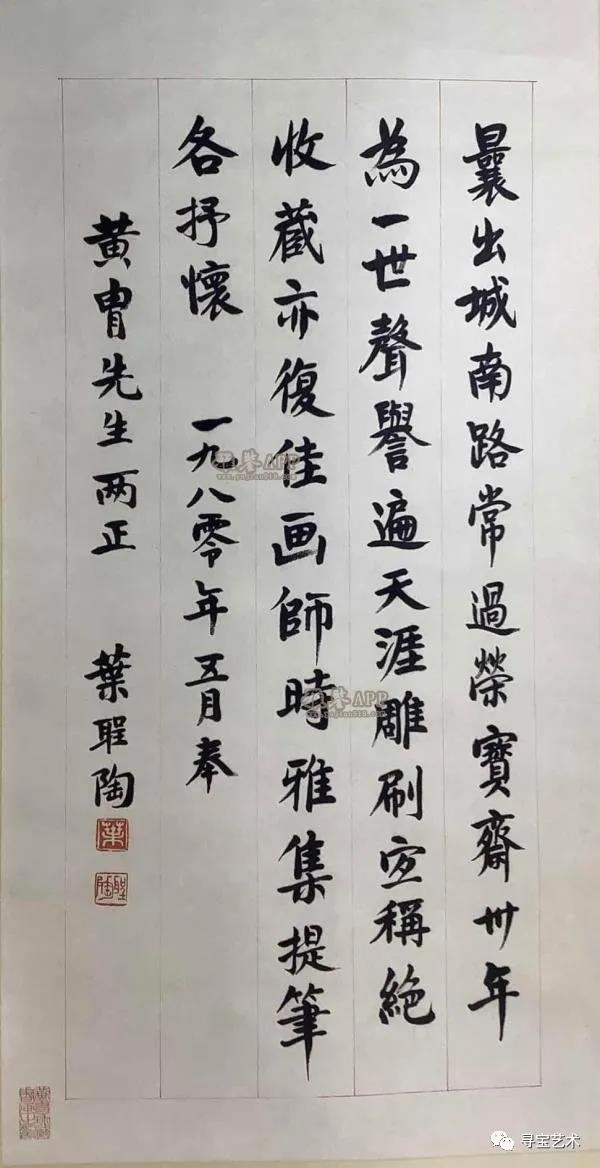 曩出城南路常過榮寶齋卅年
為一世聲譽遍天涯雕刷宜稱絕
收藏亦復佳画師時雅集提筆
各抒懷 一九八零年五月奉
黄胄先生两正 葉聖陶
葉
聖陶
APP
APP
寻宝艺术